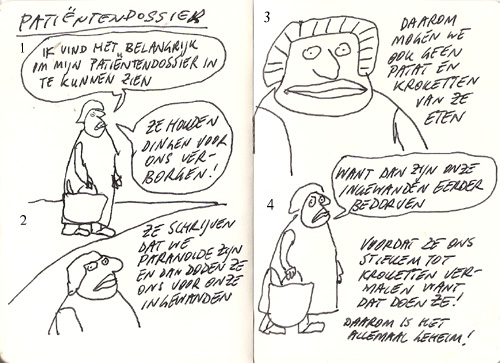 PATIËNTENDOSSIER
1
IK VIND HET BELANGRIJK
OM MIJN PATIËNTENDOSSIER IN
TE KUNNEN ZIEN
ZE HOUDEN
DINGEN VOOR
ONS VER-
BORGEN!
2
ZE SCHRIJVEN
DAT WE
PARANOIDE ZIJN
EN DAN DODEN ZE
ONS VOOR ONZE
INGEWANDEN
3
DAAROM
MOGEN WE
OOK GEEN
PATAT EN
KROKETTEN
VAN ZE
ETEN
4
WANT DAN ZIJN ONZE
INGEWANDEN EERDER
BEDORVEN
VOORDAT ZE ONS
STIEKEM TOT
KROKETTEN VER-
MALEN WANT
DAT DOEN ZE!
DAAROM IS HET
ALLEMAAL GEHEIM!